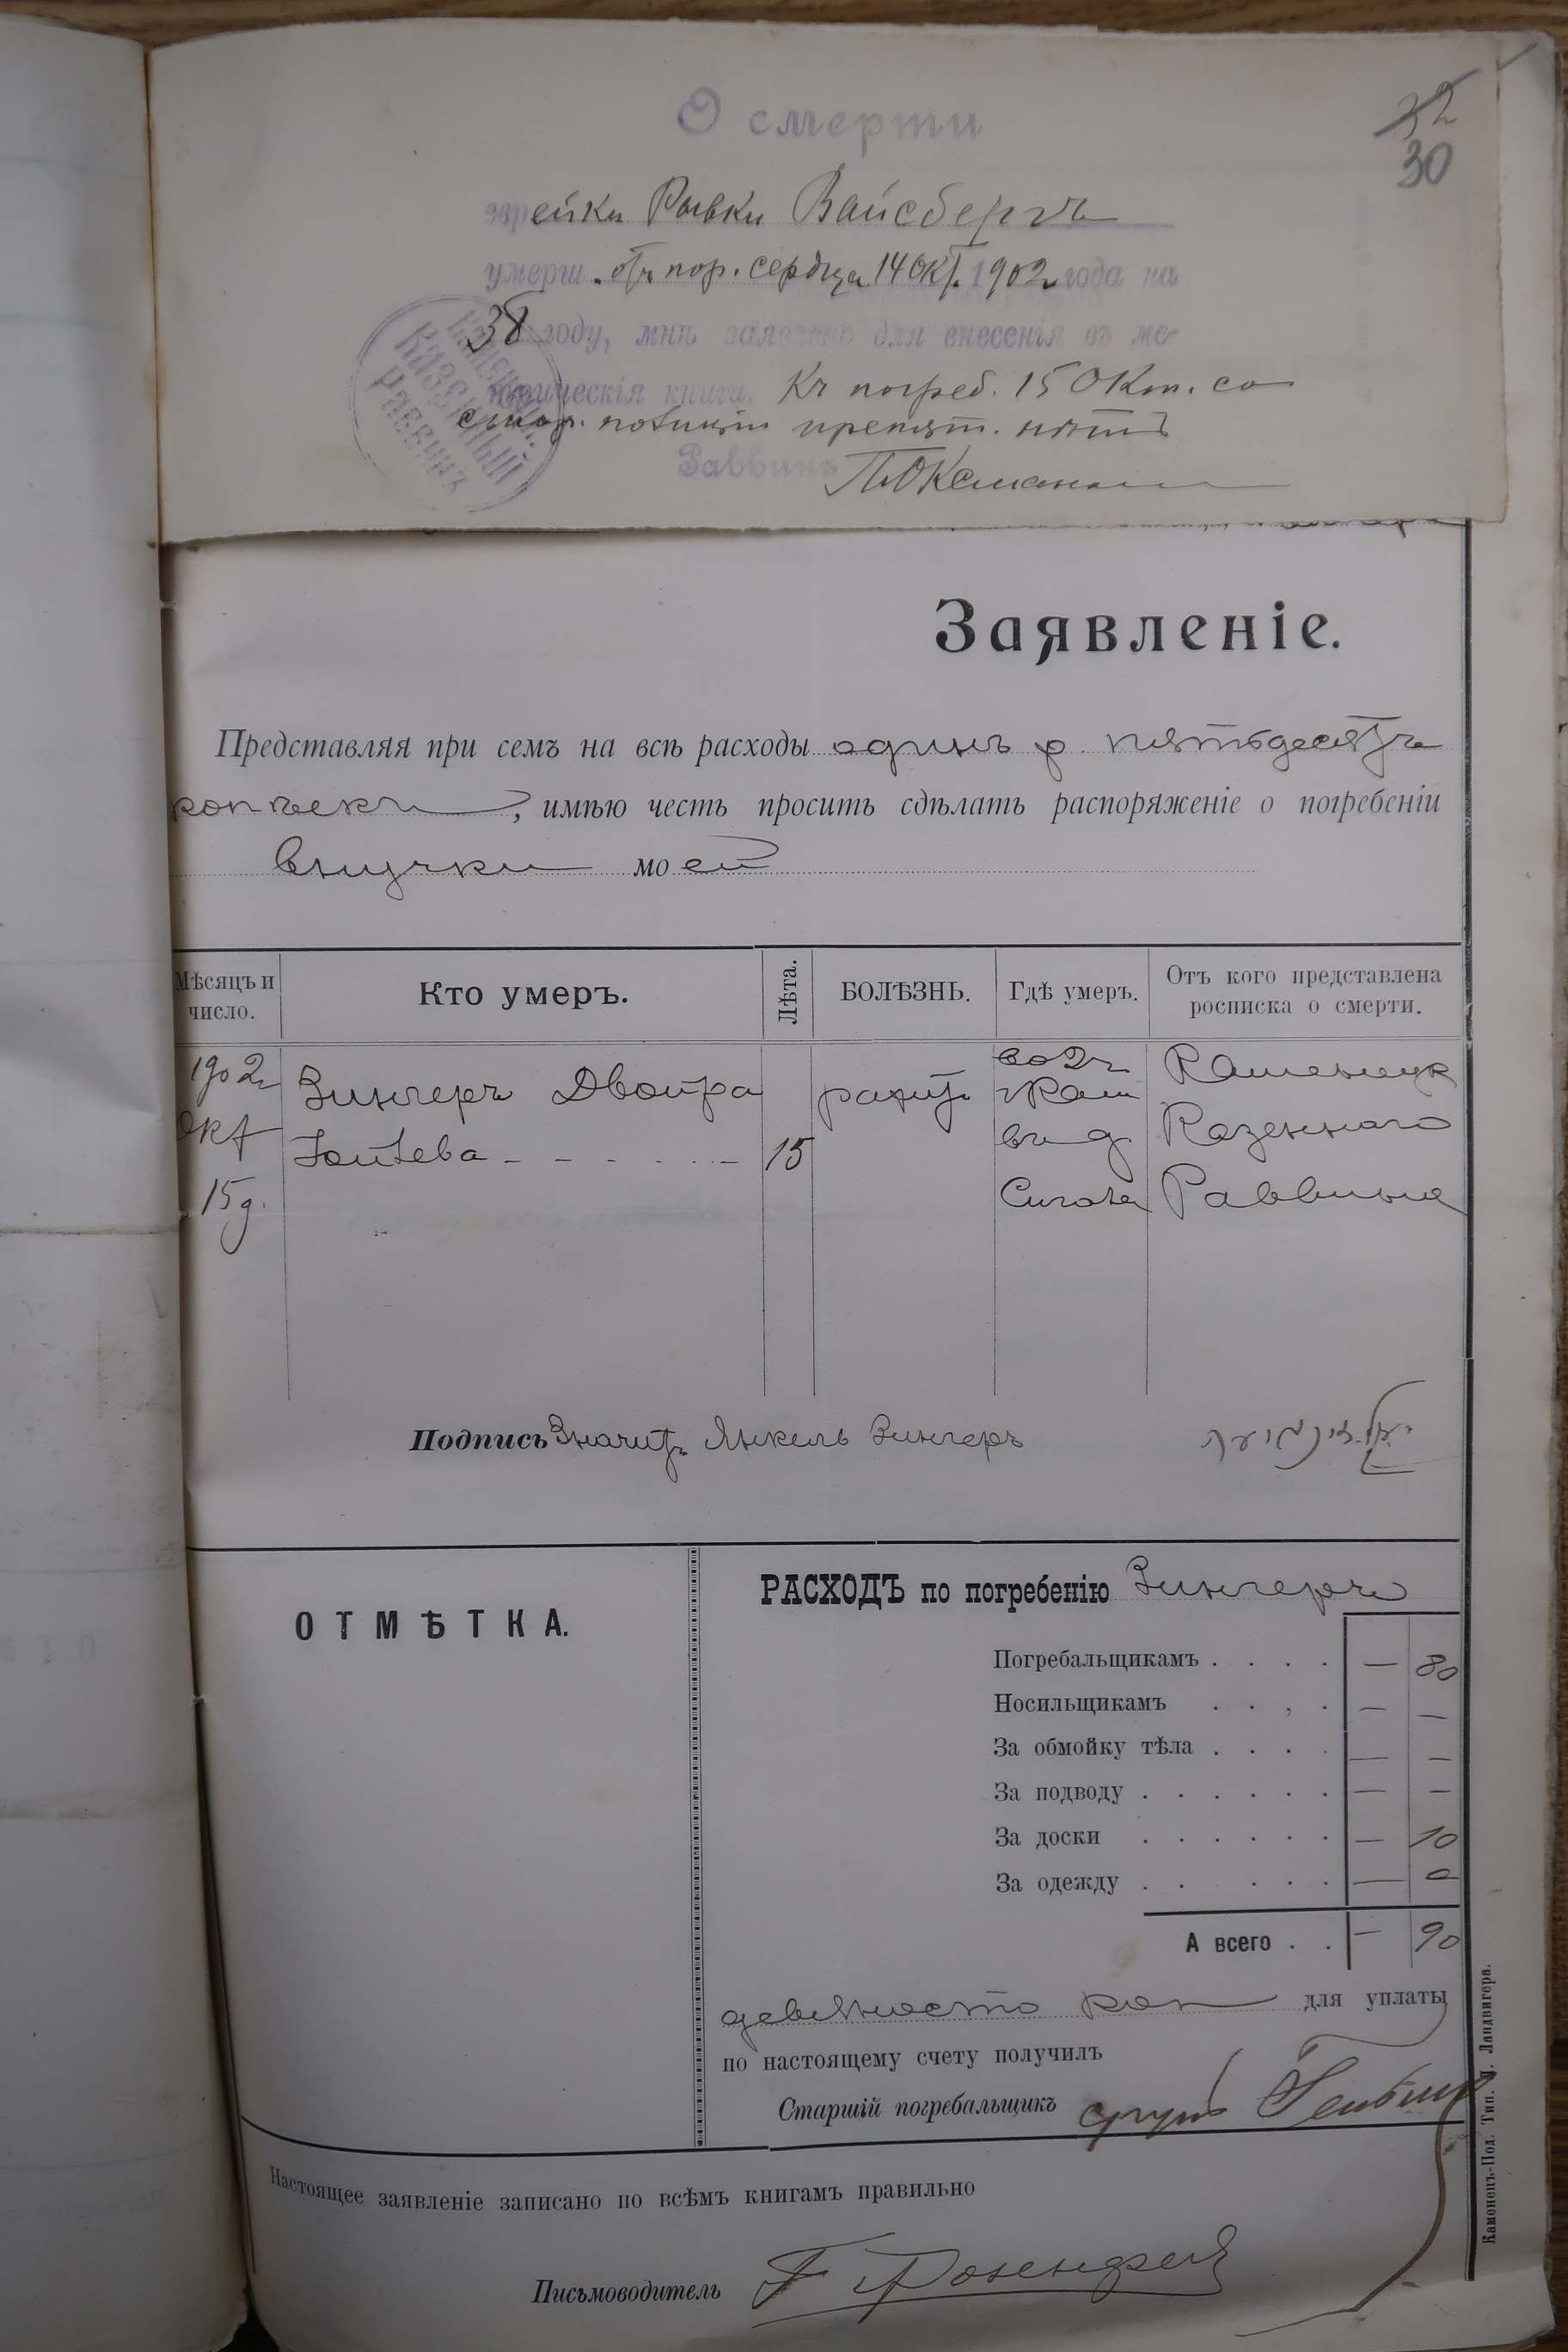 О смерти
32
30
еврейки Рывки Вайсбергъ
умерш. отъ пор. сердца 14 Окт. 1902 года на
38 году, мнѣ заявлено для внесенія въ ме-
трическія книги. Къ погреб. 15 Окт. со
стор. полиціи препят. нѣтъ
Раввинъ
КАЗЕННЫЙ
РАВВИНЪ
Заявленіе.
Представляя при семъ на всѣ расходы одинъ р. пятьдесятъ
копѣекъ, имѣю честь просить сдѣлать распоряженіе о погребеніи
внучки моей
Мѣсяцъ и число.
Кто умеръ.
Лѣта.
БОЛѢЗНЬ.
Гдѣ умеръ.
Отъ кого представлена росписка о смерти.
1902
Окт
15 д.
Зингеръ Двойра
15
въ д.
Каменецк
Казеннаго
Раввина
Подпись Значитъ Янкель Зингеръ
ОТМѢТКА.
РАСХОДЪ по погребенію Зингеръ
Погребальщикамъ . . . . — 80
Носильщикамъ . . , . — —
За обмойку тѣла . . . . — —
За подводу . . . . . . — —
За доски . . . . . . — 10
За одежду . . . . . . — 0
А всего . . — 90
девяносто коп для уплаты
по настоящему счету получилъ
Старшій погребальщикъ
Настоящее заявленіе записано по всѣмъ книгамъ правильно
Письмоводитель
Каменецъ-Под. Тип. Ландвигера.